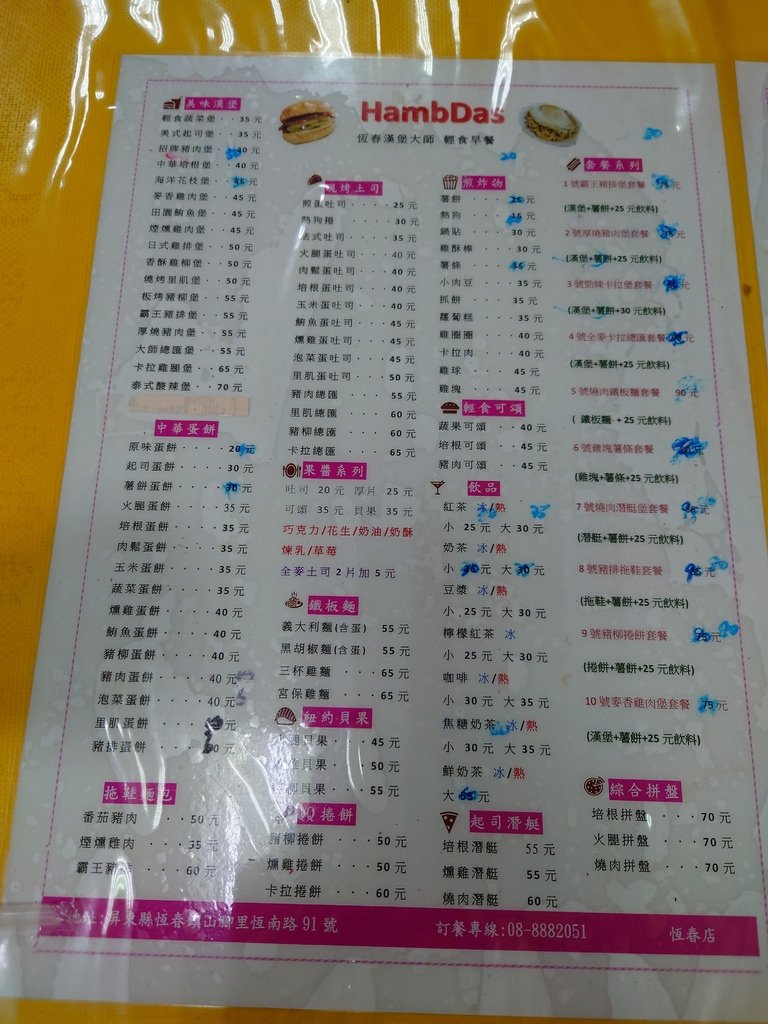 HambDas
恆春漢堡大師 輕食早餐
美味漢堡
輕食蔬菜堡 ·· 35 元
美式起司堡 ·· 35 元
招牌豬肉堡 ·· 40 元
中華培根堡 ·· 40 元
海洋花枝堡 ··
麥香雞肉堡 ·· 45 元
田園鮪魚堡 ·· 45 元
煙燻雞肉堡 ·· 45 元
日式雞排堡 ·· 50 元
香酥雞柳堡 ·· 50 元
燒烤里肌堡 ·· 50 元
板烤豬柳堡 ·· 55 元
霸王豬排堡 ·· 55 元
厚燒豬肉堡 ·· 55 元
大師總匯堡 ·· 55 元
卡拉雞腿堡 ·· 65 元
泰式酸辣堡 ·· 70 元
中華蛋餅
原味蛋餅 ···· 20 元
起司蛋餅 ···· 30 元
薯餅蛋餅 ···· 元
火腿蛋餅 ···· 35 元
培根蛋餅 ···· 35 元
肉鬆蛋餅 ···· 35 元
玉米蛋餅 ···· 35 元
蔬菜蛋餅 ···· 35 元
燻雞蛋餅 ···· 40 元
鮪魚蛋餅 ···· 40 元
豬柳蛋餅 ···· 40 元
豬肉蛋餅 ···· 40 元
泡菜蛋餅 ···· 40 元
里肌蛋餅 ···· 元
豬排蛋餅 ···· 元
拖鞋麵包
番茄豬肉 ···· 50 元
煙燻雞肉 ···· 35 元
霸王豬 ···· 60 元
烤土司
煎蛋吐司 ···· 25 元
熱狗捲 ···· 30 元
法式吐司 ···· 35 元
火腿蛋吐司 ··· 40 元
肉鬆蛋吐司 ··· 40 元
培根蛋吐司 ··· 40 元
玉米蛋吐司 ··· 40 元
鮪魚蛋吐司 ··· 45 元
燻雞蛋吐司 ··· 45 元
泡菜蛋吐司 ··· 45 元
里肌蛋吐司 ··· 50 元
豬肉總匯 ···· 55 元
里肌總匯 ···· 60 元
豬柳總匯 ···· 60 元
卡拉總匯 ···· 65 元
果醬系列
吐司 20元 厚片 25元
可頌 35元 貝果 35元
巧克力/花生/奶油/奶酥
煉乳/草莓
全麥土司2片加5元
鐵板麵
義大利麵(含蛋) 55 元
黑胡椒麵(含蛋) 55 元
三杯雞麵 ··· 65 元
宮保雞麵 ··· 65 元
紐約貝果
貝果 ··· 45 元
貝果 ··· 50 元
貝果 ··· 55 元
QQ捲餅
豬柳捲餅 ··· 50 元
燻雞捲餅 ··· 50 元
卡拉捲餅 ··· 60 元
煎炸物
20
薯餅 ···· 元
熱狗 ···· 15 元
鍋貼 ···· 30 元
雞酥棒 ··· 30 元
薯條 ···· 元
小肉豆 ··· 35 元
抓餅 ···· 35 元
蘿蔔糕 ··· 35 元
雞圈圈 ··· 40 元
卡拉肉 ··· 40 元
雞球 ···· 45 元
雞塊 ···· 45 元
輕食可頌
蔬果可頌 ·· 40 元
培根可頌 ·· 45 元
豬肉可頌 ·· 45 元
飲品
紅茶 冰/熱
小 25元 大 30元
奶茶 冰/熱
小 元 大 元
豆漿 冰/熱
小 25元 大 30元
檸檬紅茶 冰
小 25元 大 30元
咖啡 冰/熱
小 30元 大 35元
焦糖奶茶 冰/熱
小 30元 大 35元
鮮奶茶 冰/熱
大 元
起司潛艇
培根潛艇 55 元
燻雞潛艇 55 元
燒肉潛艇 60 元
30
套餐系列
1 號霸王豬排堡套餐
(漢堡+薯餅+25元飲料)
2 號厚燒豬肉堡套餐
(漢堡+薯餅+25元飲料)
3 號勁辣卡拉堡套餐
(漢堡+薯餅+30元飲料)
4 號全麥卡拉總匯套餐
(漢堡+薯餅+25元飲料)
5 號燒肉鐵板麵套餐 90元
( 鐵板麵 +25元飲料)
6 號雞塊薯條套餐
(雞塊+薯條+25元飲料)
7 號燒肉潛艇堡套餐
(潛艇+薯餅+25元飲料)
8 號豬排拖鞋套餐
(拖鞋+薯餅+25元飲料)
9 號豬柳捲餅套餐
(捲餅+薯餅+25元飲料)
10 號麥香雞肉堡套餐
(漢堡+薯餅+25元飲料)
綜合拼盤
培根拼盤 ··· 70 元
火腿拼盤 ··· 70 元
燒肉拼盤 ··· 70 元
地址:屏東縣恆春鎮山腳里恆南路 91 號
訂餐專線:08-8882051
恆春店